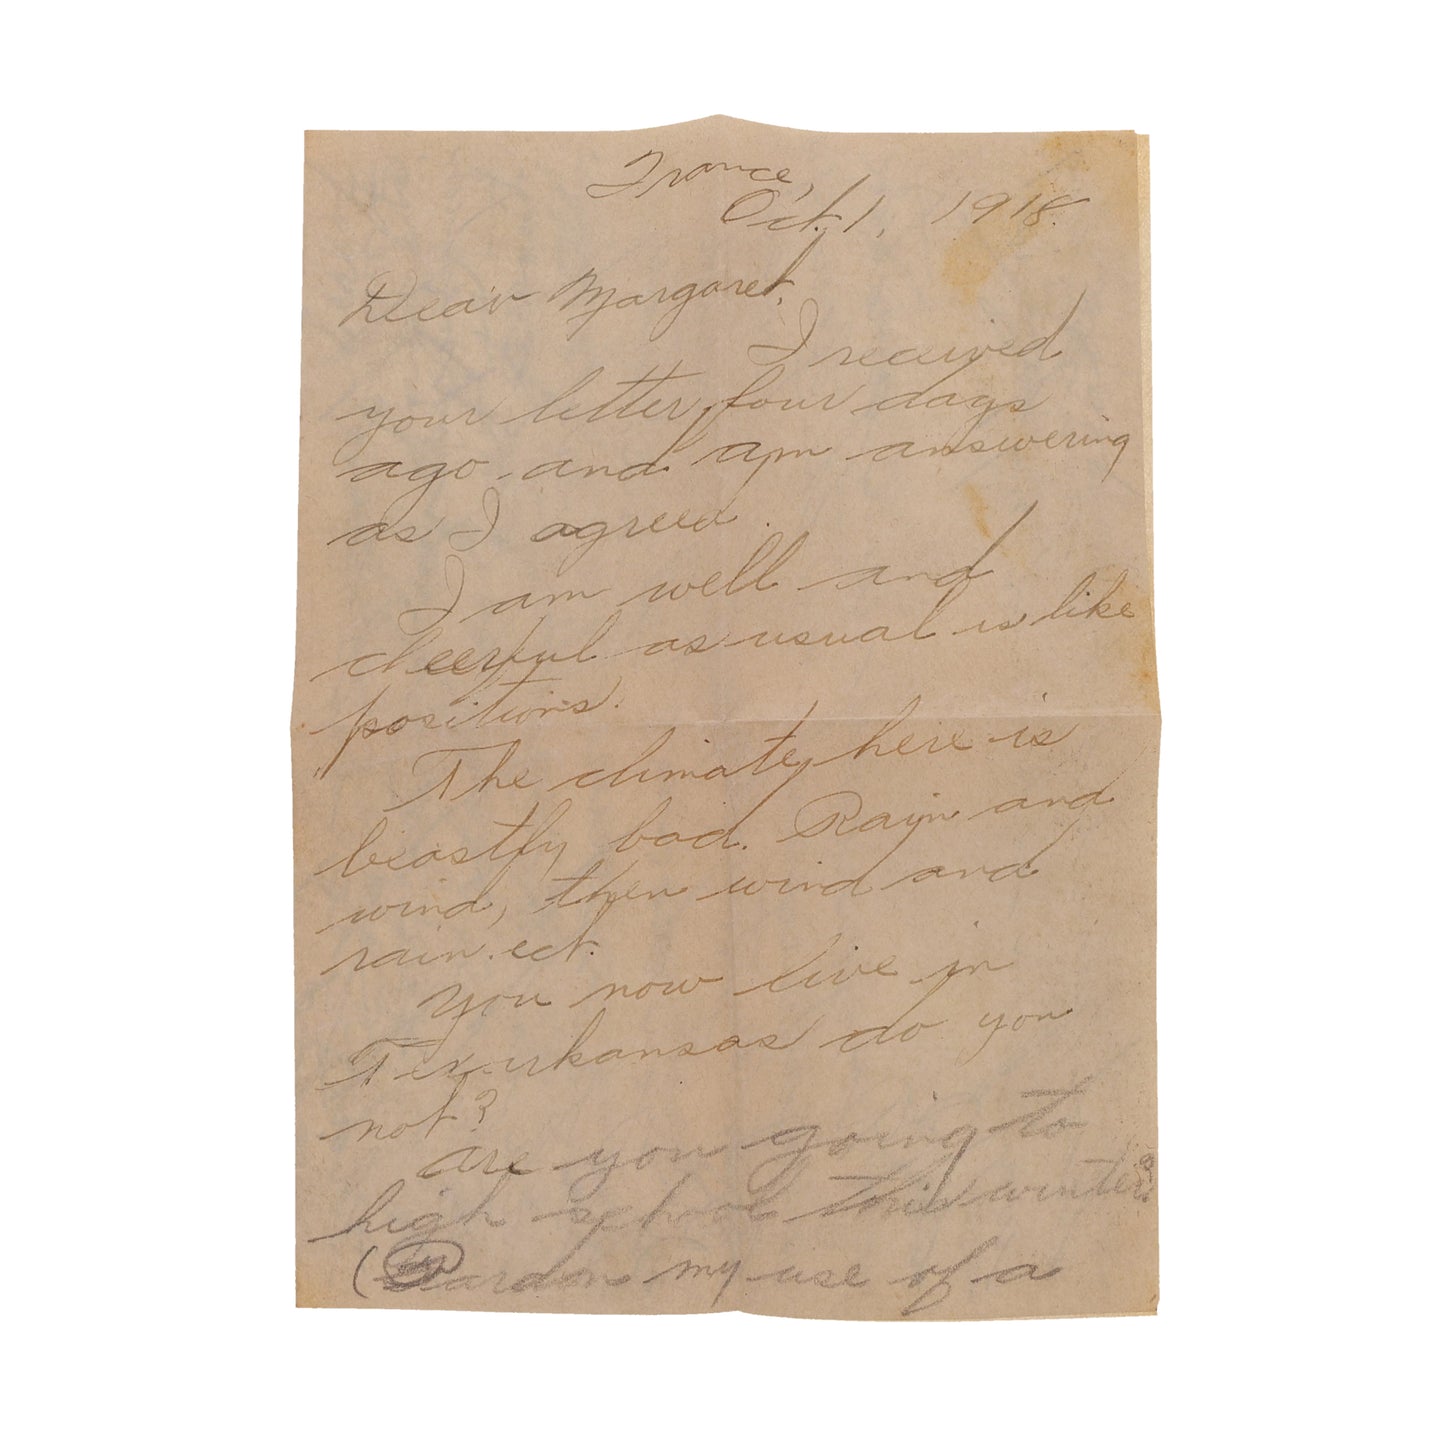 France,
Oct. 1, 1918.
Dear Margaret,
I received
your letter four days
ago and am answering
as I agreed.
I am well and
cheerful as usual is like
positions.
The climate here is
beastly bad. Rain and
wind, then wind and
rain. ect.
You now live in
Texarkansas do you
not?
Are you going to
high school this winter?
(Pardon my use of a